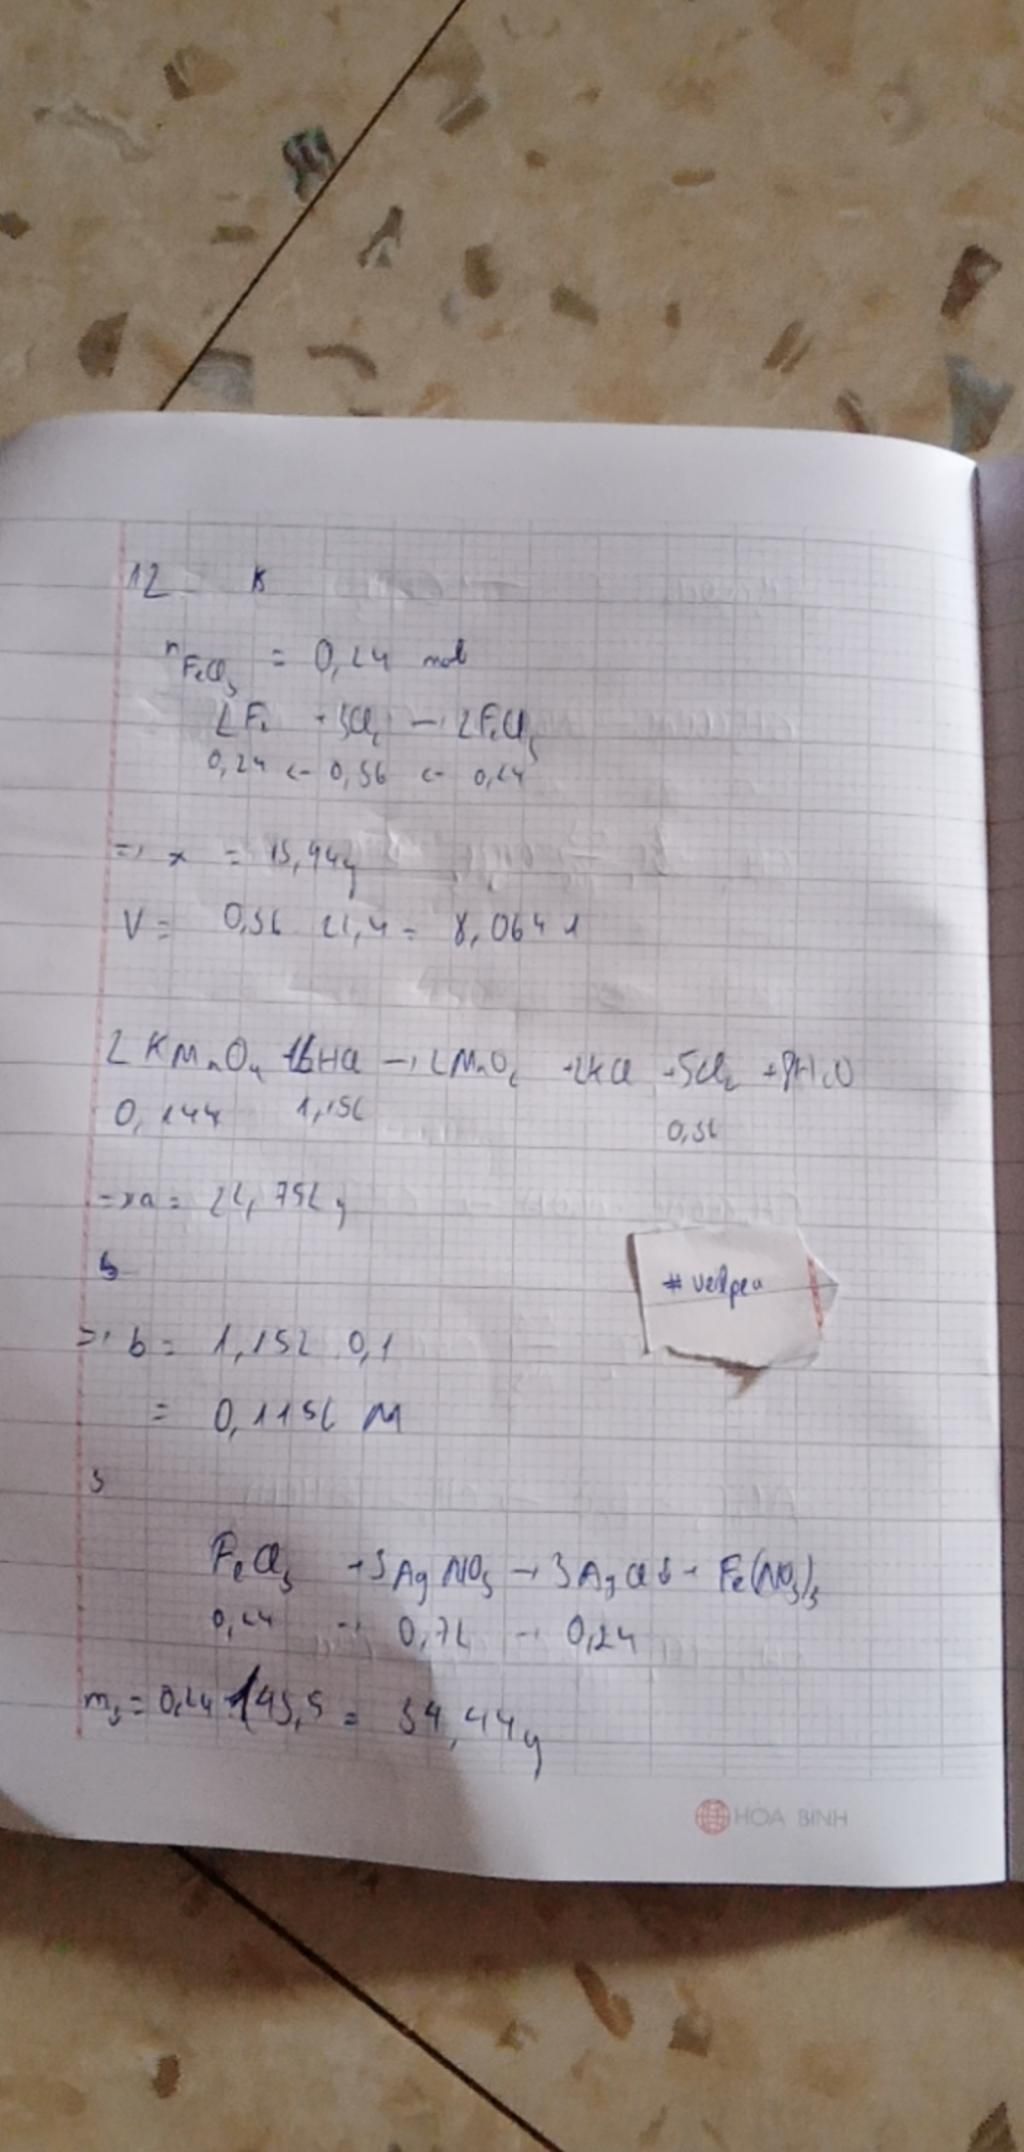 12
nFeCl3 = 0,24 mol
2Fe + 3Cl2 → 2FeCl3
0,24 <- 0,36 <- 0,24
=> x = 13,44g
V = 0,36 22,4 = 8,064 l
2KMnO4 16HCl → 2MnCl2 +2KCl +5Cl2 +8H2O
0,144 1,152 0,36
=> a = 22,752g
#verlpea
=> b = 1,152 0,1
= 0,1152 M
FeCl3 +3AgNO3 → 3AgCl↓ + Fe(NO3)3
0,24 → 0,72 → 0,24
m↓ = 0,24 143,5 = 34,44g
HÒA BÌNH